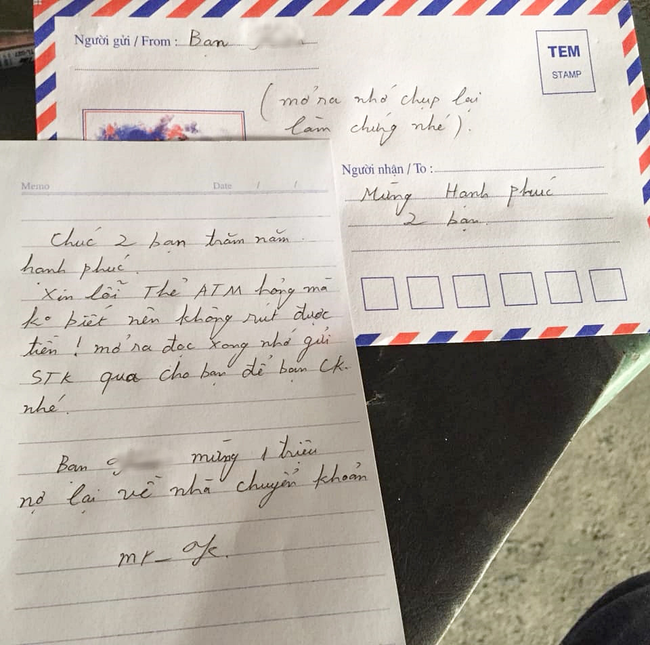 Người gửi / From : Bạn
TEM
STAMP
( mở ra nhớ chụp lại
làm chứng nhé ).
Người nhận / To :
Mừng Hạnh phúc
2 bạn
Memo Date / /
Chúc 2 bạn trăm năm
hạnh phúc.
Xin lỗi Thẻ ATM hỏng mà
ko biết nên không rút được
tiền ! mở ra đọc xong nhớ gửi
STK qua cho bạn để bạn CK.
nhé.
Bạn mừng 1 triệu
nợ lại về nhà chuyển khoản
mr_